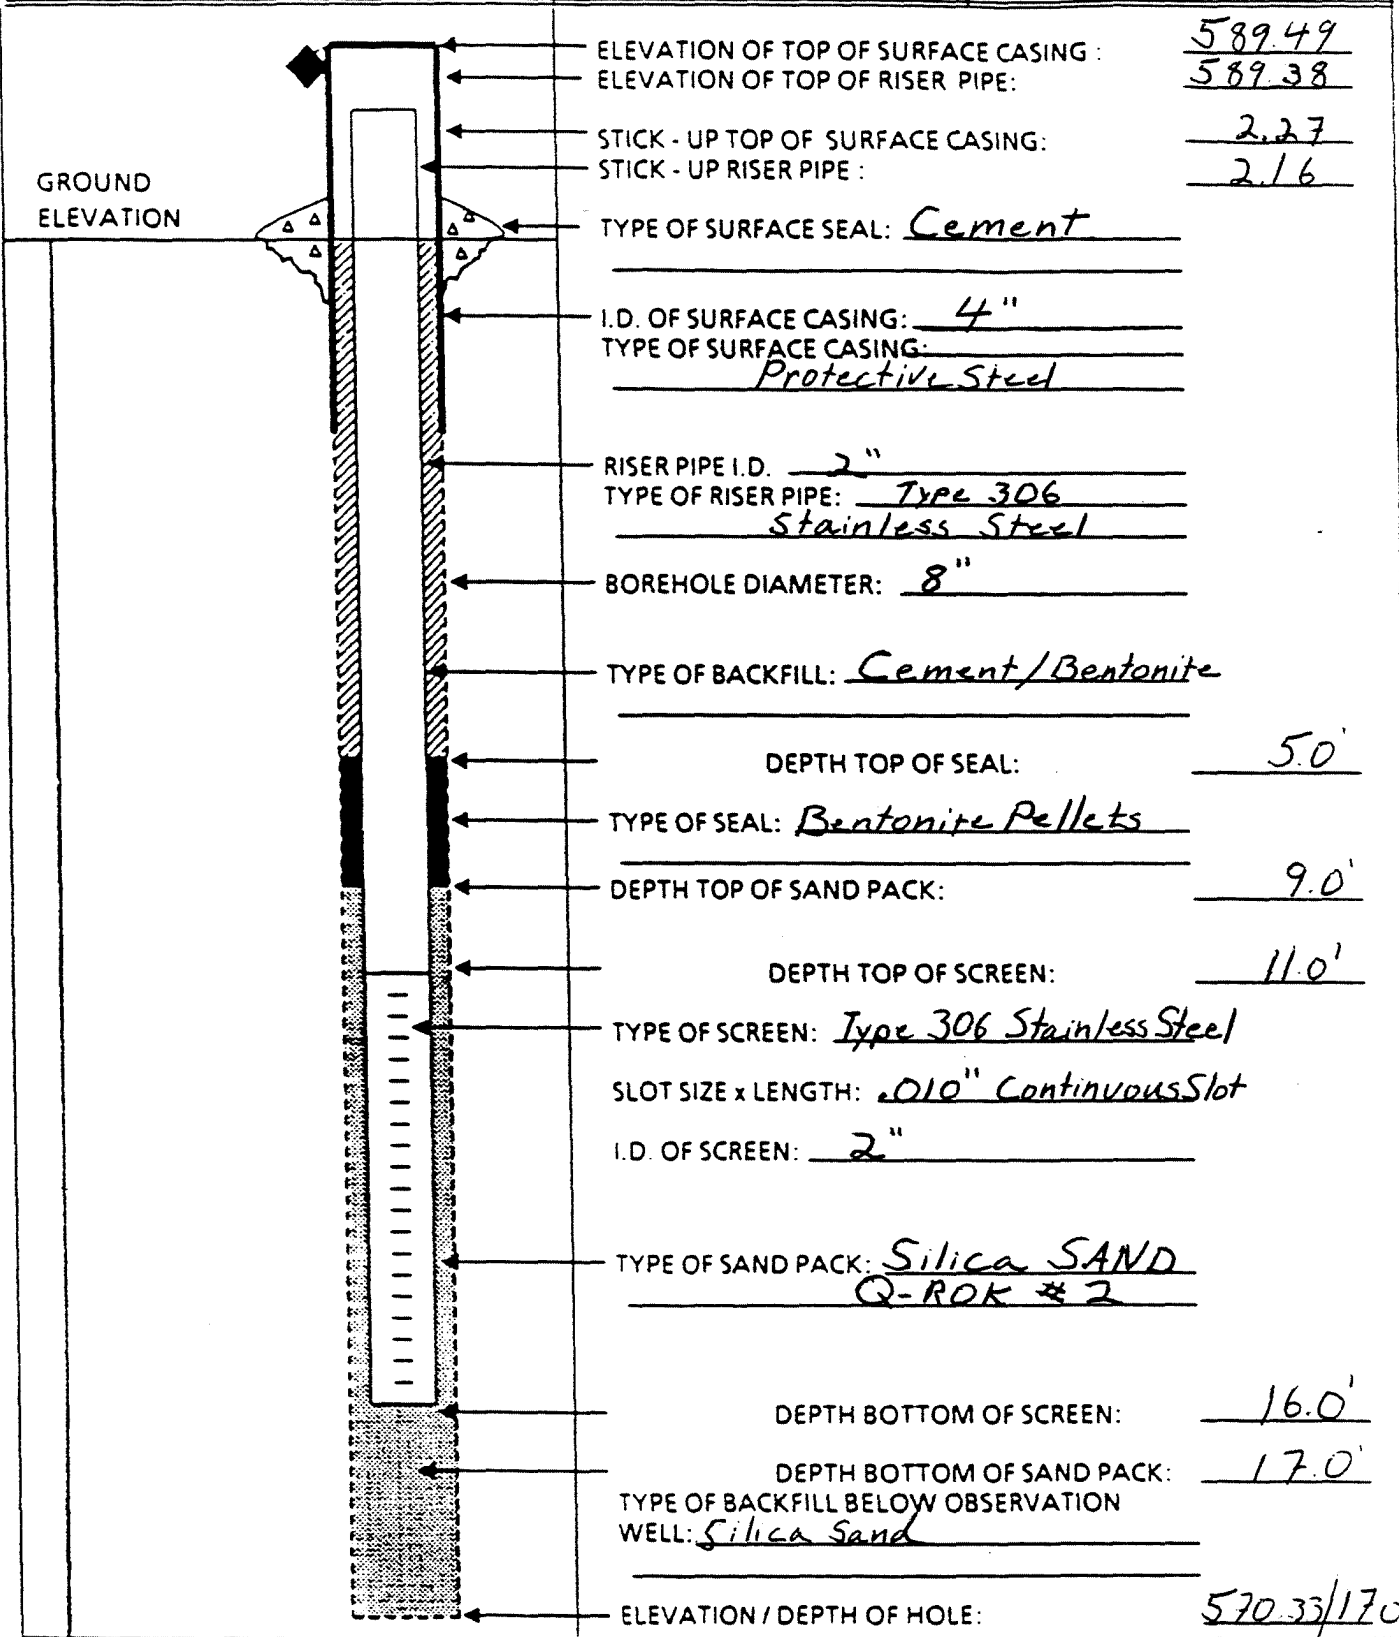 ELEVATION OF TOP OF SURFACE CASING : 589.49
ELEVATION OF TOP OF RISER PIPE: 589.38
STICK - UP TOP OF SURFACE CASING: 2.27
STICK - UP RISER PIPE : 2.16
GROUND
ELEVATION
TYPE OF SURFACE SEAL: Cement
I.D. OF SURFACE CASING: 4"
TYPE OF SURFACE CASING:
Protective Steel
RISER PIPE I.D. 2"
TYPE OF RISER PIPE: Type 306
Stainless Steel
BOREHOLE DIAMETER: 8"
TYPE OF BACKFILL: Cement/Bentonite
DEPTH TOP OF SEAL: 5.0'
TYPE OF SEAL: Bentonite Pellets
DEPTH TOP OF SAND PACK: 9.0'
DEPTH TOP OF SCREEN: 11.0'
TYPE OF SCREEN: Type 306 Stainless Steel
SLOT SIZE x LENGTH: .010" Continuous Slot
I.D. OF SCREEN: 2"
TYPE OF SAND PACK: Silica SAND
Q-ROK # 2
DEPTH BOTTOM OF SCREEN: 16.0'
DEPTH BOTTOM OF SAND PACK: 17.0'
TYPE OF BACKFILL BELOW OBSERVATION
WELL: Silica Sand
ELEVATION / DEPTH OF HOLE: 570.33/17.0